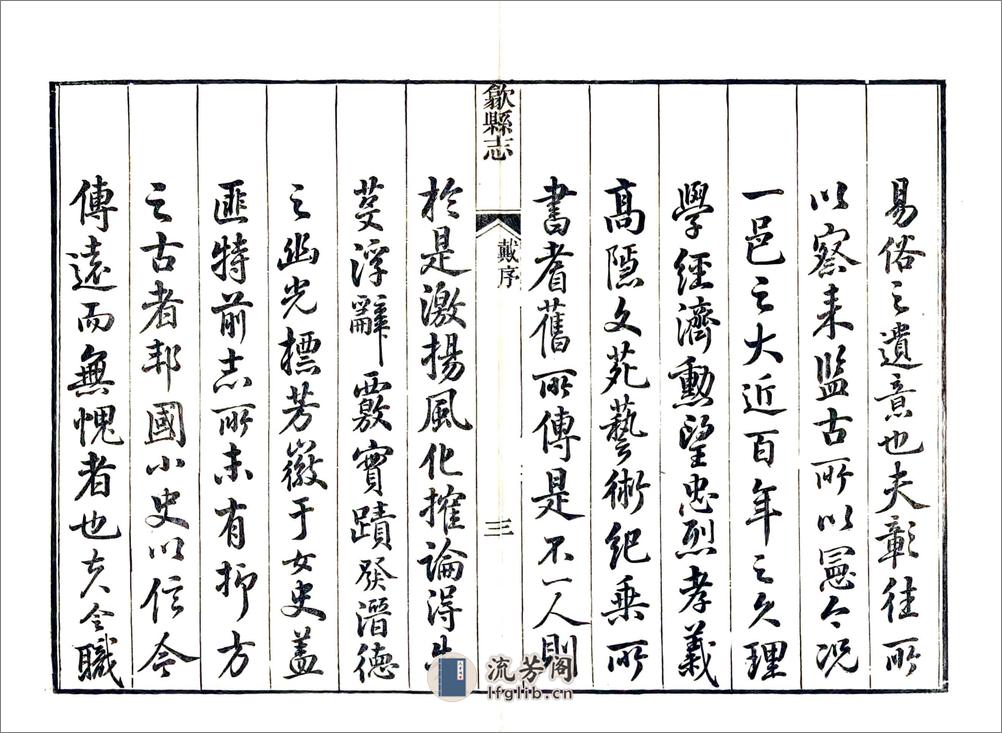 易俗之遺意也夫彰往所
以察来监古所以憲今况
一邑之大近百年之久理
學經濟勲望忠烈孝義
高隱文苑藝術紀乗所
書耆舊所傳是不一人則
歙縣志
戴序
三
於是激揚風化搉論得失
芟浮辭覈實蹟發潛德
之幽光標芳徽于女史盖
匪特前志所未有抑方
之古者邦國小史以信今
傳遠而無愧者也夫令職
流芳阁
lfglib.cn